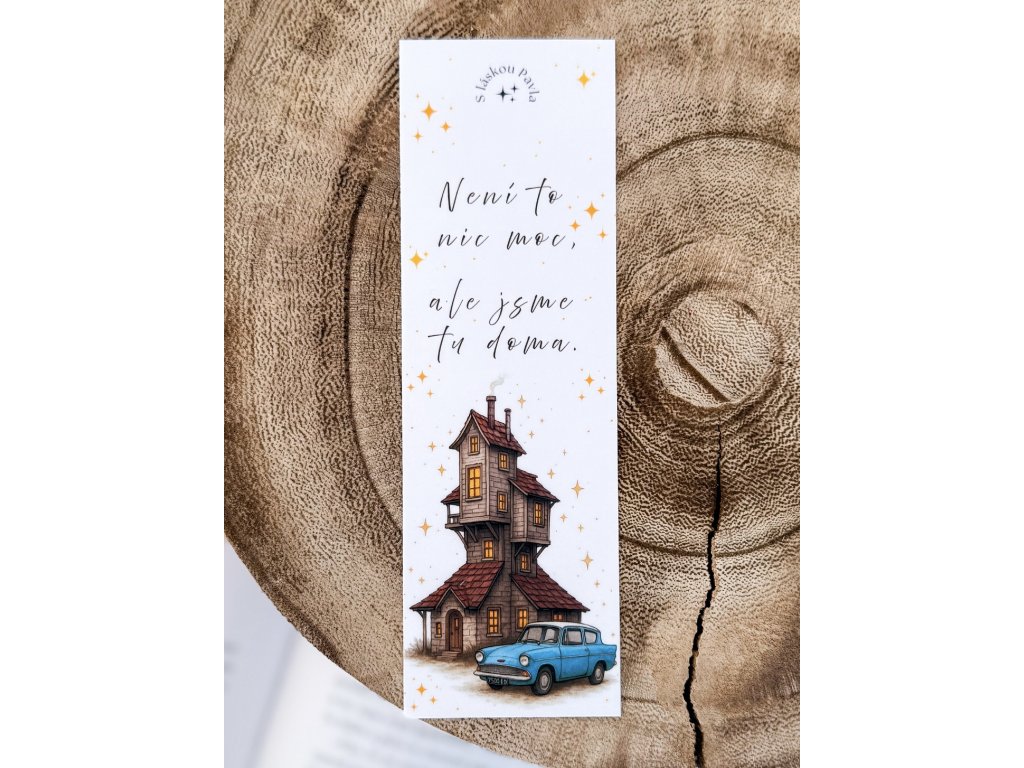 S láskou Pavla
Není to
nic moc,
ale jsme
tu doma.